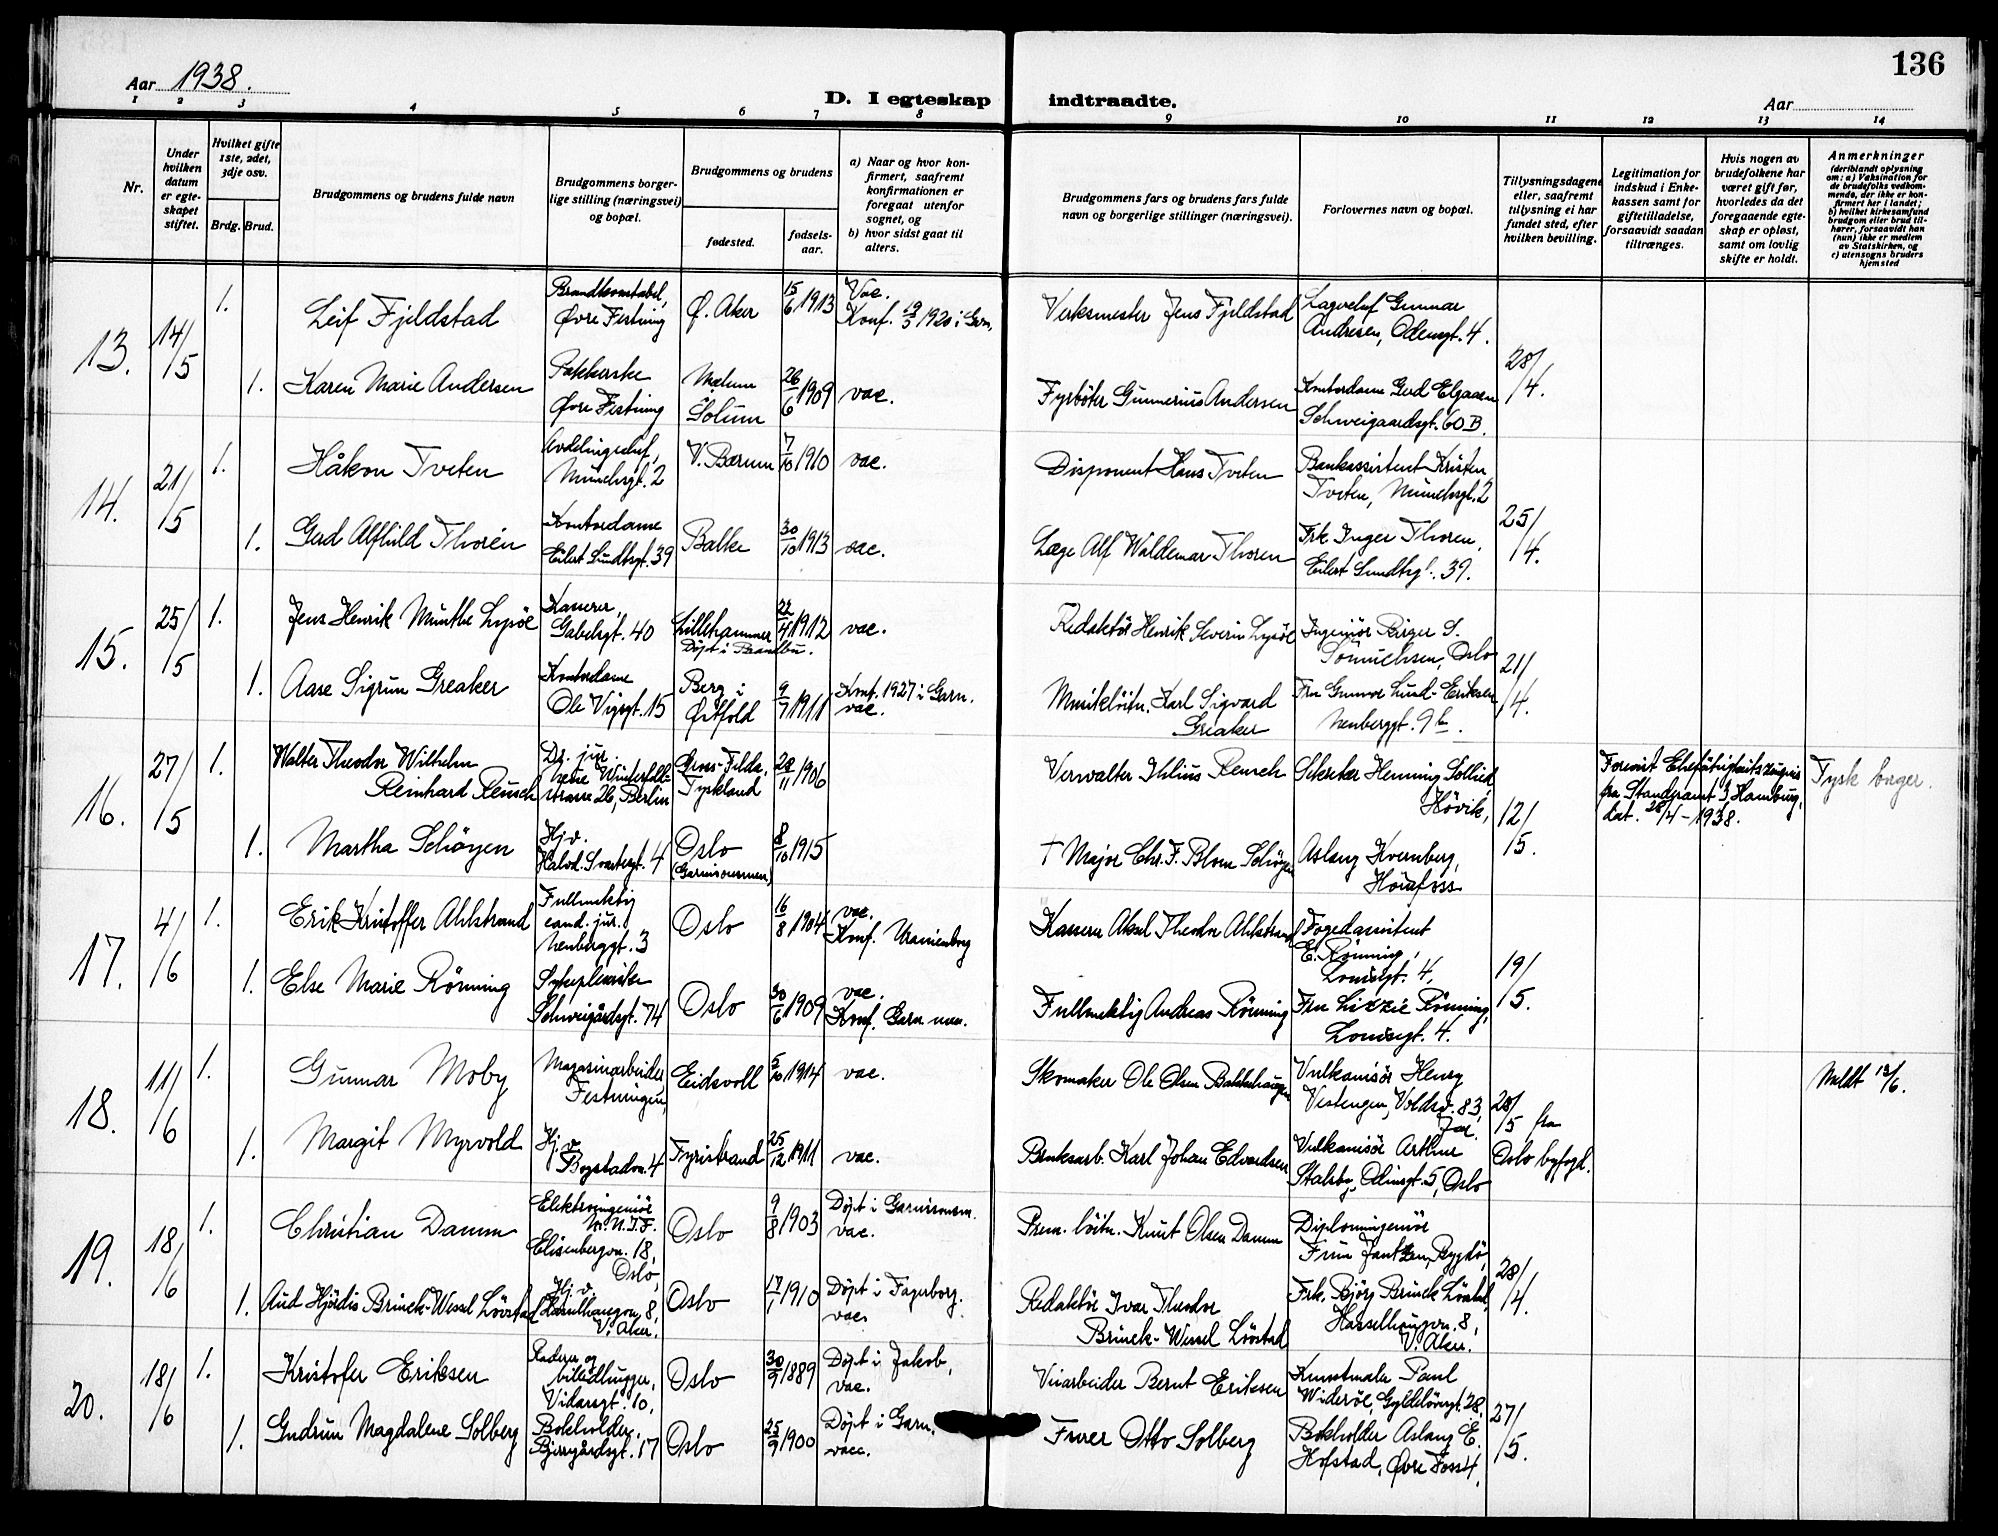 136
Aar 1938.
D. I egteskap indtraadte.
Aar
1 2 3 4 5 6 7 8 9 10 11 12 13 14
Nr.
Under hvilken datum er egteskapet stiftet.
Hvilket gifte 1ste, 2det, 3dje osv.
Brdg. Brud.
Brudgommens og brudens fulde navn
Brudgommens borgerlige stilling (næringsvei) og bopæl.
Brudgommens og brudens
fødested.
fødselsaar.
a) Naar og hvor konfirmert, saafremt konfirmationen er foregaat utenfor sognet, og
b) hvor sidst gaat til alters.
Brudgommens fars og brudens fars fulde navn og borgerlige stillinger (næringsvei).
Forlovernes navn og bopæl.
Tillysningsdagene eller, saafremt tillysning ei har fundet sted, efter hvilken bevilling.
Legitimation for indskud i Enkekassen samt for giftetilladelse, forsaavidt saadan tiltrænges.
Hvis nogen av brudefolkene har været gift før, hvorledes da det foregaaende egteskap er opløst, samt om lovlig skifte er holdt.
Anmerkninger
(deriblandt oplysning om: a) Vaksination for de brudefolks vedkommende, der ikke er konfirmert her i landet;
b) hvilket kirkesamfund brudgom eller brud tilhører, forsaavidt han (hun) ikke er medlem av Statskirken, og
c) utensogns bruders hjemsted
13. 14/5 1. Leif Fjeldstad
Brandkonstabel, Øvre Festning
Ø. Aker 15/6 1913
Vac. Konf. 1920 i Grn.
Verksmester Jens Fjeldstad
Gunnar Andresen, Odensgt. 4.
28/4.
1. Karen Marie Andersen
Pakkerske Øvre Festning
Melum Solum 26/6 1909 vac.
Fyrbøter Gunnerius Andersen
Kontordame Gerd Elgaaen Schweigaardsgt. 60 B.
14. 21/5 1. Håkon Tveten
Avdelingschef, Munchsgt. 2
V. Bærum 7/10 1910 vac.
Disponent Hans Tveten
Bankassistent Kristen Tveten, Munchsgt. 2
25/4.
1. Gerd Alfhild Thorén
Kontordame Eilert Sundtsgt. 39
Balke 30/10 1913 vac.
Læge Alf Waldemar Thoren
Frk. Inger Thoren, Eilert Sundtsgt. 39.
15. 25/5 1. Jens Henrik Munthe Lysøe
Kasserer, Gabelsgt. 40
Lillehammer 22/4 1912 vac.
Døpt i Brandbu.
Redaktør Henrik Severin Lysøe
Ingeniør Birger S. Sømuelsen, Oslo
21/4.
1. Aase Sigrun Greaker
Kontordame Ole Vigsgt. 15
Berg i Østfold 9/7 1911
Konf. 1927 i Garn. vac.
Musikløitn. Karl Sigvard Greaker
Fru Gunvor Lund-Eriksen
16. 27/5 1. Walter Theodor Wilhelm Reinhard Reusch
Dr. jur. Winterfeldtstrasse 26, Berlin
Tyskland 28/11 1906
Verwalter Julius Reusch
Sekretær Henning Sollied, Høvik,
12/5.
Forevist Ehefähigkeitszeugnis fra Standesamt 3, Hamburg, dat. 28/4-1938.
Tysk borger.
1. Martha Schøyen
Hj.v. Halvd. Svartesgt. 4
Oslo (Garnisonsmen.) 8/10 1915
† Major Chr. F. Blom Schøyen
Aslaug Kvernberg, Hønefoss
17. 4/6 1. Erik Kristoffer Ahlstrand
Fullmektig cand. jur.
Oslo 16/8 1904
vac. Konf. Uranienborg
Kasserer Aksel Theodor Ahlstrand
Fogedassistent E. Rønning,
19/5.
1. Else Marie Rønning
Sykepleierske Schweigårdsgt. 74
Oslo 30/6 1909
vac. Konf. Garn. men.
Fullmektig Andreas Rønning
Fru Lizzie Rønning,
18. 11/6 1. Gunnar Moby
Magasinarbeider Festningen,
Eidsvoll 5/10 1914 vac.
Skomaker Ole Olsen Bakkehaugen
Vulkanisør Henry Vestengen, Voldsv. 83, Jar.
28/5 fra Oslo byfogd.
Meldt 13/6.
1. Margit Myrvold
Hj.v. Bogstadvn. 4
Fyristrand 25/12 1911 vac.
Bruksarb. Karl Johan Edvardsen
Vulkanisør Arthur Stalsby, Odinsgt. 5, Oslo
19. 18/6 1. Christian Damm
Elektroingeniør M.N.I.F. Elisenbergvn. 18, Oslo,
Oslo 9/8 1903
Døpt i Garnisonsm. vac.
Prem. løitn. Knut Olsen Damm
Diplomingeniør Finn Jantzen, Bygdø,
28/4.
1. Aud Hjördis Brinck-Wessel Løvstad
Hj.v. Hasselhaugvn. 8, V. Aker.
Oslo 17/1 1910
Døpt i Fagerborg. vac.
Redaktør Ivar Theodor Brinck-Wessel Løvstad
Frk. Bjørg Brinck Løvstad, Hasselhaugvn. 8, V. Aker.
20. 18/6 1. Kristofer Eriksen
Raderer og billedhugger, Vidarsgt. 10,
Oslo 30/9 1889
Døpt i Jakob, vac.
Veiarbeider Bernt Eriksen
Kunstmaler Paul Widerøe, Gyldeløvsgt. 28,
27/5.
1. Gudrun Magdalene Solberg
Bokholder, Bjerregårdsgt. 17
Oslo 25/9 1900
Døpt i Garn. vacc.
Furer Otto Solberg
Bokholder Aslaug E. Hofstad, Øvre Foss 4.